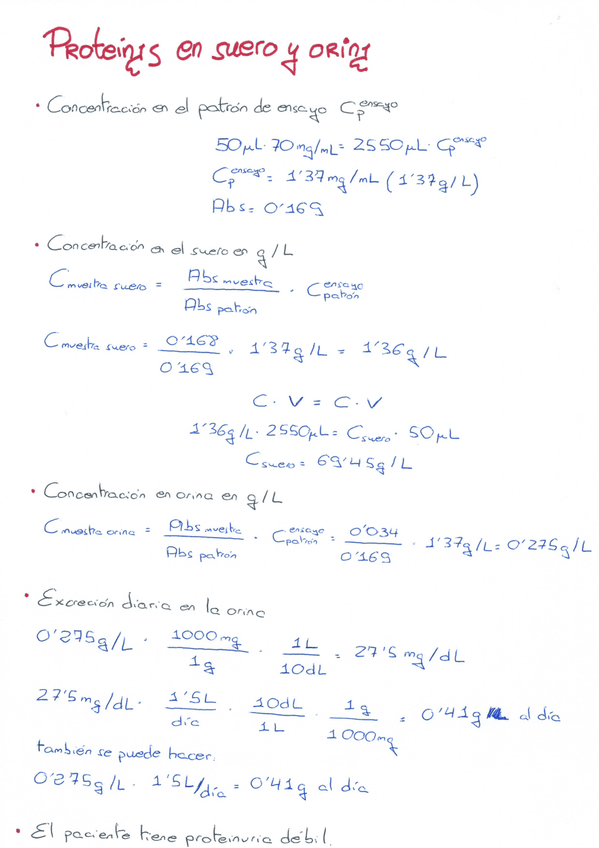 Proteinas en suero y orina
• Concentración en el patrón de ensayo Cp^ensayo
50μL · 70mg/mL = 2550μL · Cp^ensayo
Cp^ensayo = 1'37mg/mL (1'37g/L)
Abs = 0'169
• Concentración en el suero en g/L
Cmuestra suero = Abs muestra / Abs patrón · C patrón^ensayo
Cmuestra suero = 0'168 / 0'169 · 1'37g/L = 1'36g/L
C · V = C · V
1'36g/L · 2550μL = Csuero · 50μL
Csuero = 69'45g/L
• Concentración en orina en g/L
Cmuestra orina = Abs muestra / Abs patrón · C patrón^ensayo = 0'034 / 0'169 · 1'37g/L = 0'275g/L
• Excreción diaria en la orina
0'275g/L · 1000mg / 1g · 1L / 10dL = 27'5 mg/dL
27'5mg/dL · 1'5L / día · 10dL / 1L · 1g / 1000mg = 0'41g al día
también se puede hacer:
0'275g/L · 1'5L/día = 0'41g al día
• El paciente tiene proteinuria débil.